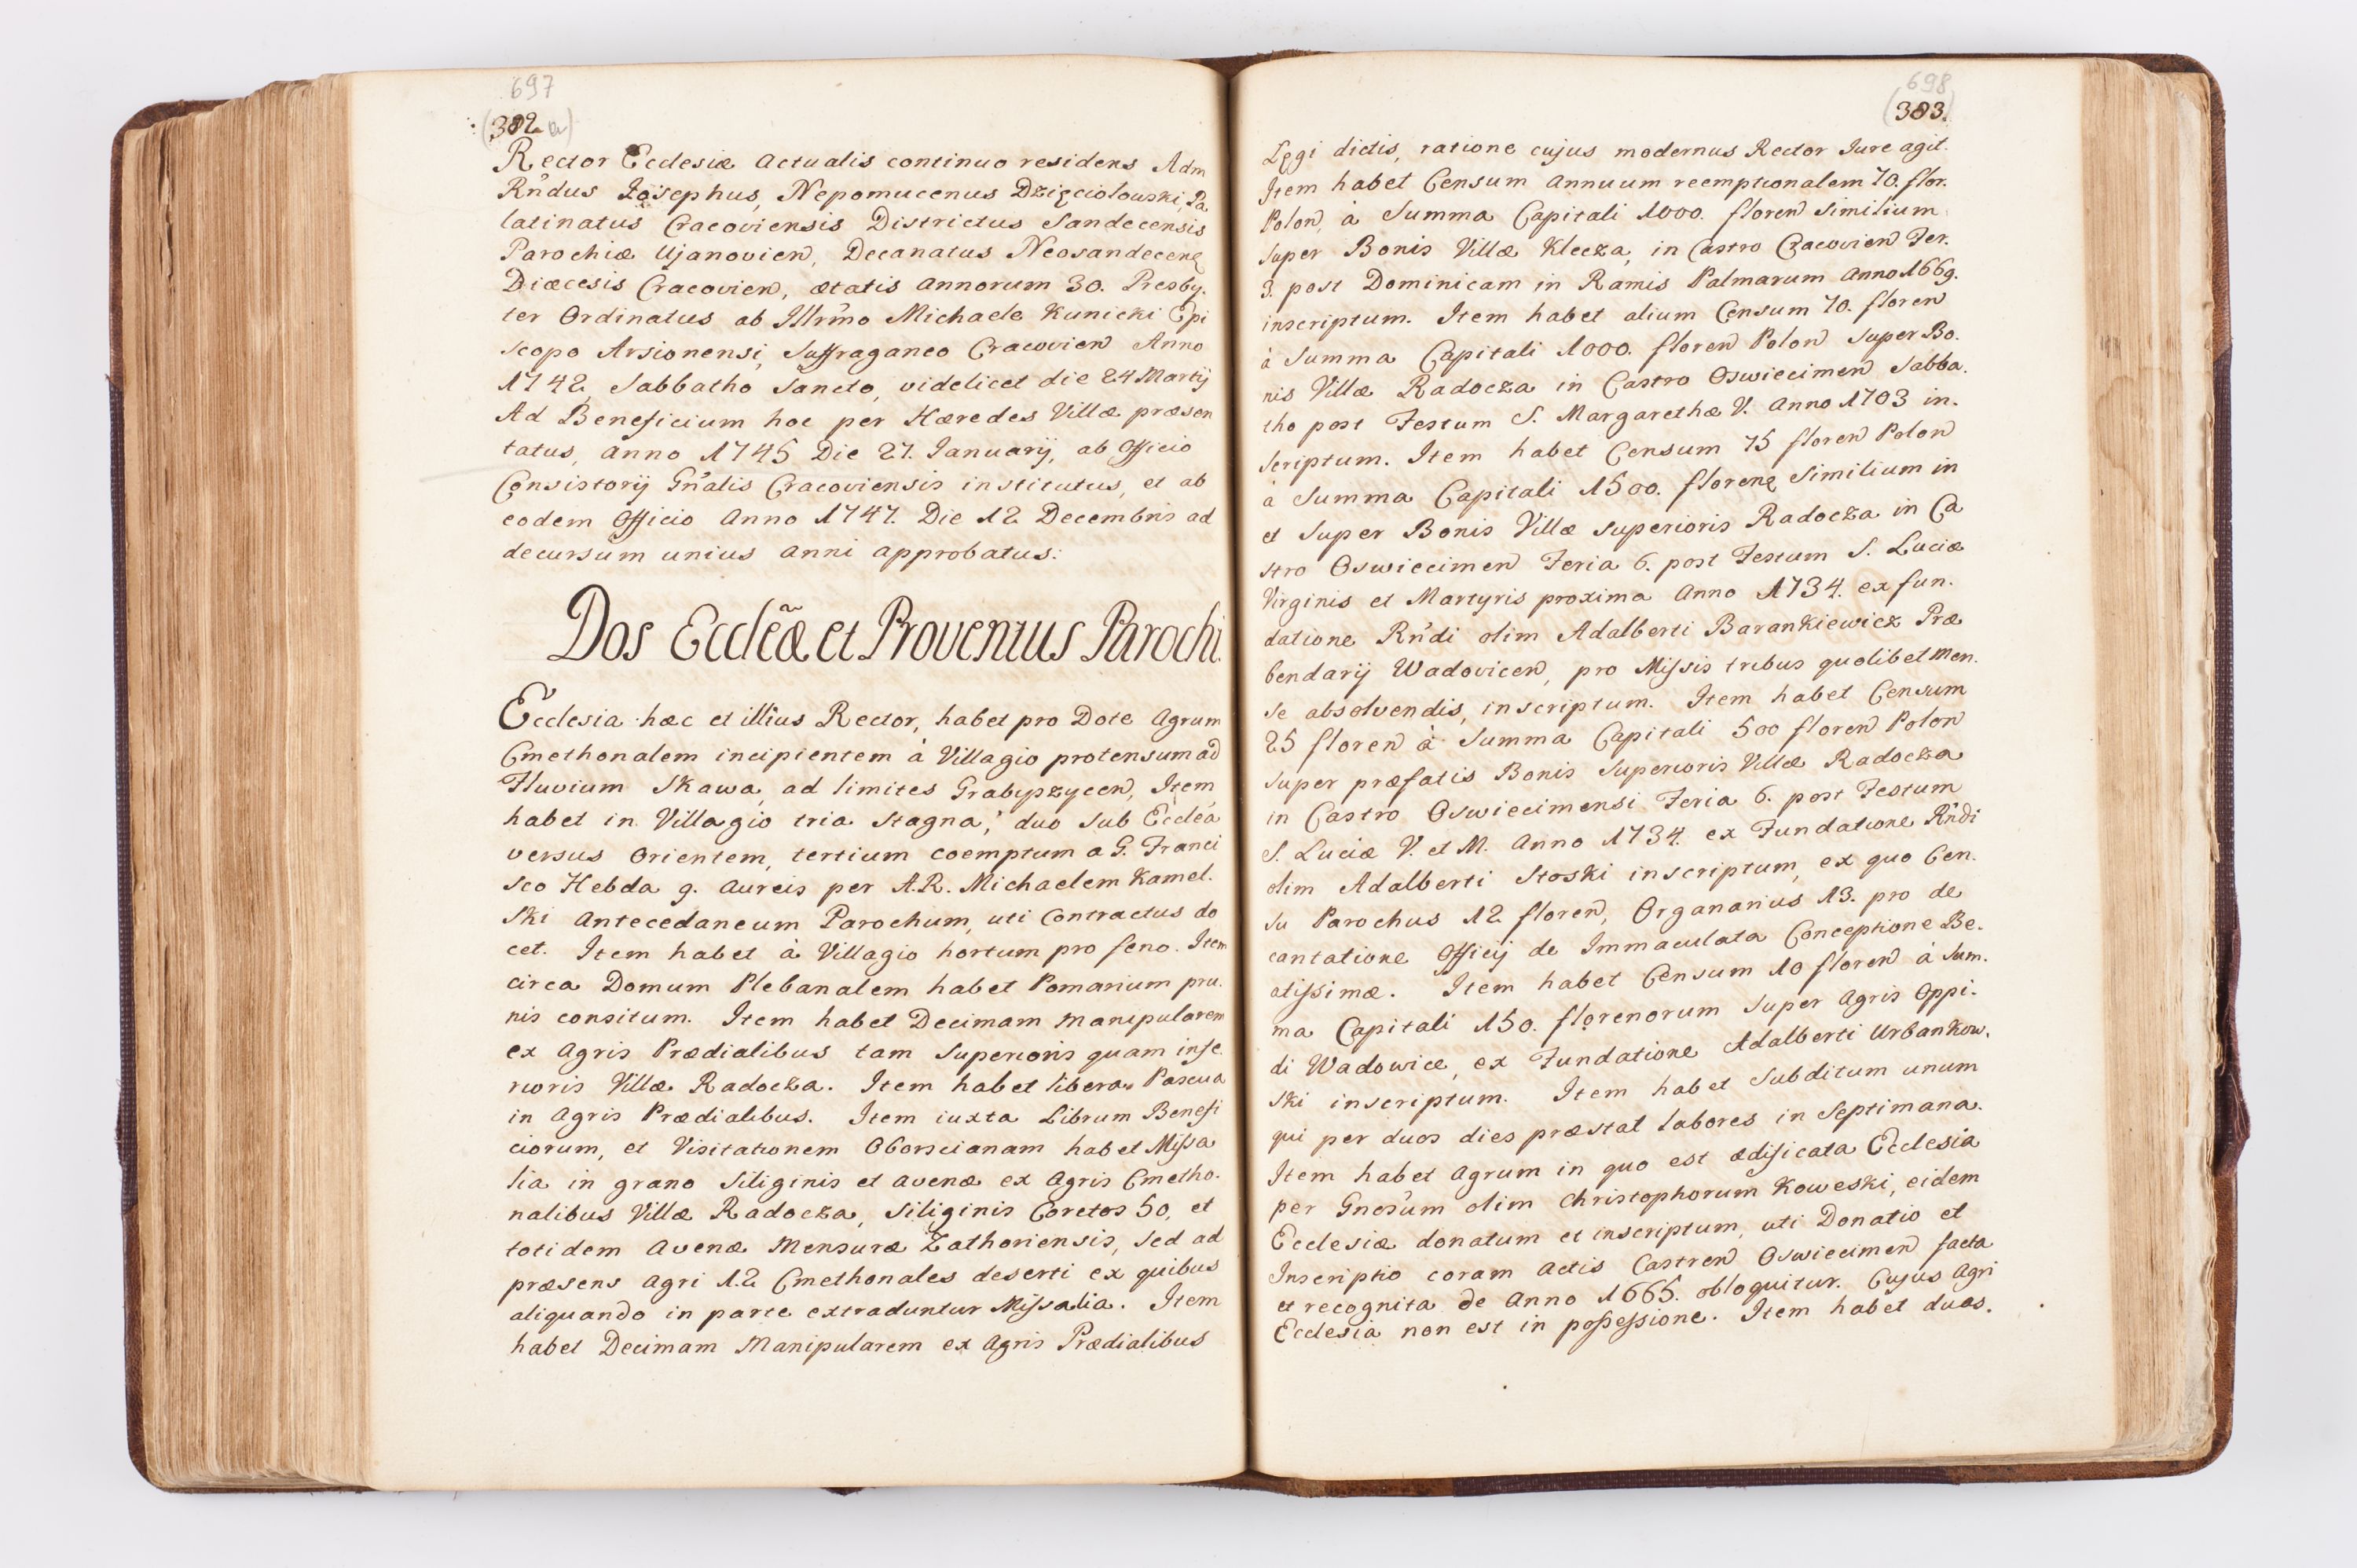 697
(382 a)
Rector Ecclesiæ Actualis continuo residens Adm
Rñdus Josephus, Nepomucenus Dzięciołowski, Pa
latinatus Cracoviensis Districtus Sandecensis
Parochiæ Ujanovien, Decanatus Neosandecen
Diæcesis Cracovien, ætatis annorum 30. Presby.
ter Ordinatus ab Illrmo Michaele Kunicki Epi
scopo Arsionensi, Suffraganeo Cracovien Anno
1742, Sabbatho Sancto, videlicet die 24 Martij
Ad Beneficium hoc per Hæredes Villæ præsen
tatus, anno 1745 Die 27. Januarij, ab Officio
Consistorij Gñalis Cracoviensis institutus, et ab
eodem Officio Anno 1747. Die 12 Decembris ad
decursum unius anni approbatus.
Dos Eccleæ et Proventus Parochi.
Ecclesia hæc et illius Rector, habet pro Dote Agrum
Cmethonalem incipientem à Villagio protensum ad
Fluvium Skawa, ad limites Grabyszycen, Item
habet in Villagio tria Stagna, duo sub Eccleá
versus Orientem, tertium coemptum a G. Franci
sco Hebda 9. Aureis per A.R. Michaelem Kamel.
ski Antecedaneum Parochum, uti Contractus do
cet. Item habet à Villagio hortum pro feno. Item
circa Domum Plebanalem habet Pomarium pru.
nis consitum. Item habet Decimam Manipularem
ex Agris Prædialibus tam Superioris quam infe
rioris Villæ Radocza. Item habet libera Pascua
in Agris Prædialibus. Item iuxta Librum Benefi
ciorum, et Visitationem Oborscianam habet Missa
lia in grano Siliginis et avenæ ex Agris Cmetho.
nalibus Villæ Radocza, Siliginis Coretos 50, et
totidem Avenæ Mensuræ Zathoriensis, sed ad
præsens agri 12 Cmethonales deserti ex quibus
aliquando in parte extraduntur Missalia. Item
habet Decimam Manipularem ex Agris Prædialibus
698
(383.)
Legi dictis, ratione cujus modernus Rector Jure agit.
Item habet Censum Annuum reemptionalem 70. flor.
Polon, à Summa Capitali 1000. floren Similium
super Bonis Villæ Klecza, in Castro Cracovien Fer.
3. post Dominicam in Ramis Palmarum Anno 1669.
inscriptum. Item habet alium Censum 70. floren
à Summa Capitali 1000. floren Polon super Bo.
nis Villæ Radocza in Castro Oswiecimen Sabba.
tho post Festum S. Margarethæ V. Anno 1703 in.
scriptum. Item habet Censum 75 floren Polon
à Summa Capitali 1500. floren Similium in
et super Bonis Villæ superioris Radocza in Ca
stro Oswiecimen Feria 6. post Festum S. Luciæ
Virginis et Martyris proxima Anno 1734. ex fun.
datione Rñdi olim Adalberti Barankiewicz Præ
bendarij Wadovicen, pro Missis tribus quolibet men.
se absolvendis, inscriptum. Item habet Censum
25 floren à Summa Capitali 500 floren Polon
super præfatis Bonis Superioris Villæ Radocza
in Castro Oswiecimensi Feria 6. post Festum
S. Luciæ V. et M. Anno 1734. ex Fundatione Rñdi
olim Adalberti Stoski inscriptum, ex quo Cen.
su Parochus 12 floren, Organarius 13. pro de
cantatione Officij de Immaculata Conceptione Be.
atissimæ. Item habet Censum 10 floren à Sum.
ma Capitali 150. florenorum super Agris Oppi.
di Wadowice, ex Fundatione Adalberti Urbankow.
ski inscriptum. Item habet Subditum unum
qui per duos dies præstat labores in Septimana.
Item habet Agrum in quo est ædificata Ecclesia
per Gnosum olim Christophorum Koweski, eidem
Ecclesiæ donatum et inscriptum, uti Donatio et
Inscriptio coram Actis Castren Oswiecimen facta
et recognita de Anno 1665. obloquitur. Cujus Agri
Ecclesia non est in possessione. Item habet duas.